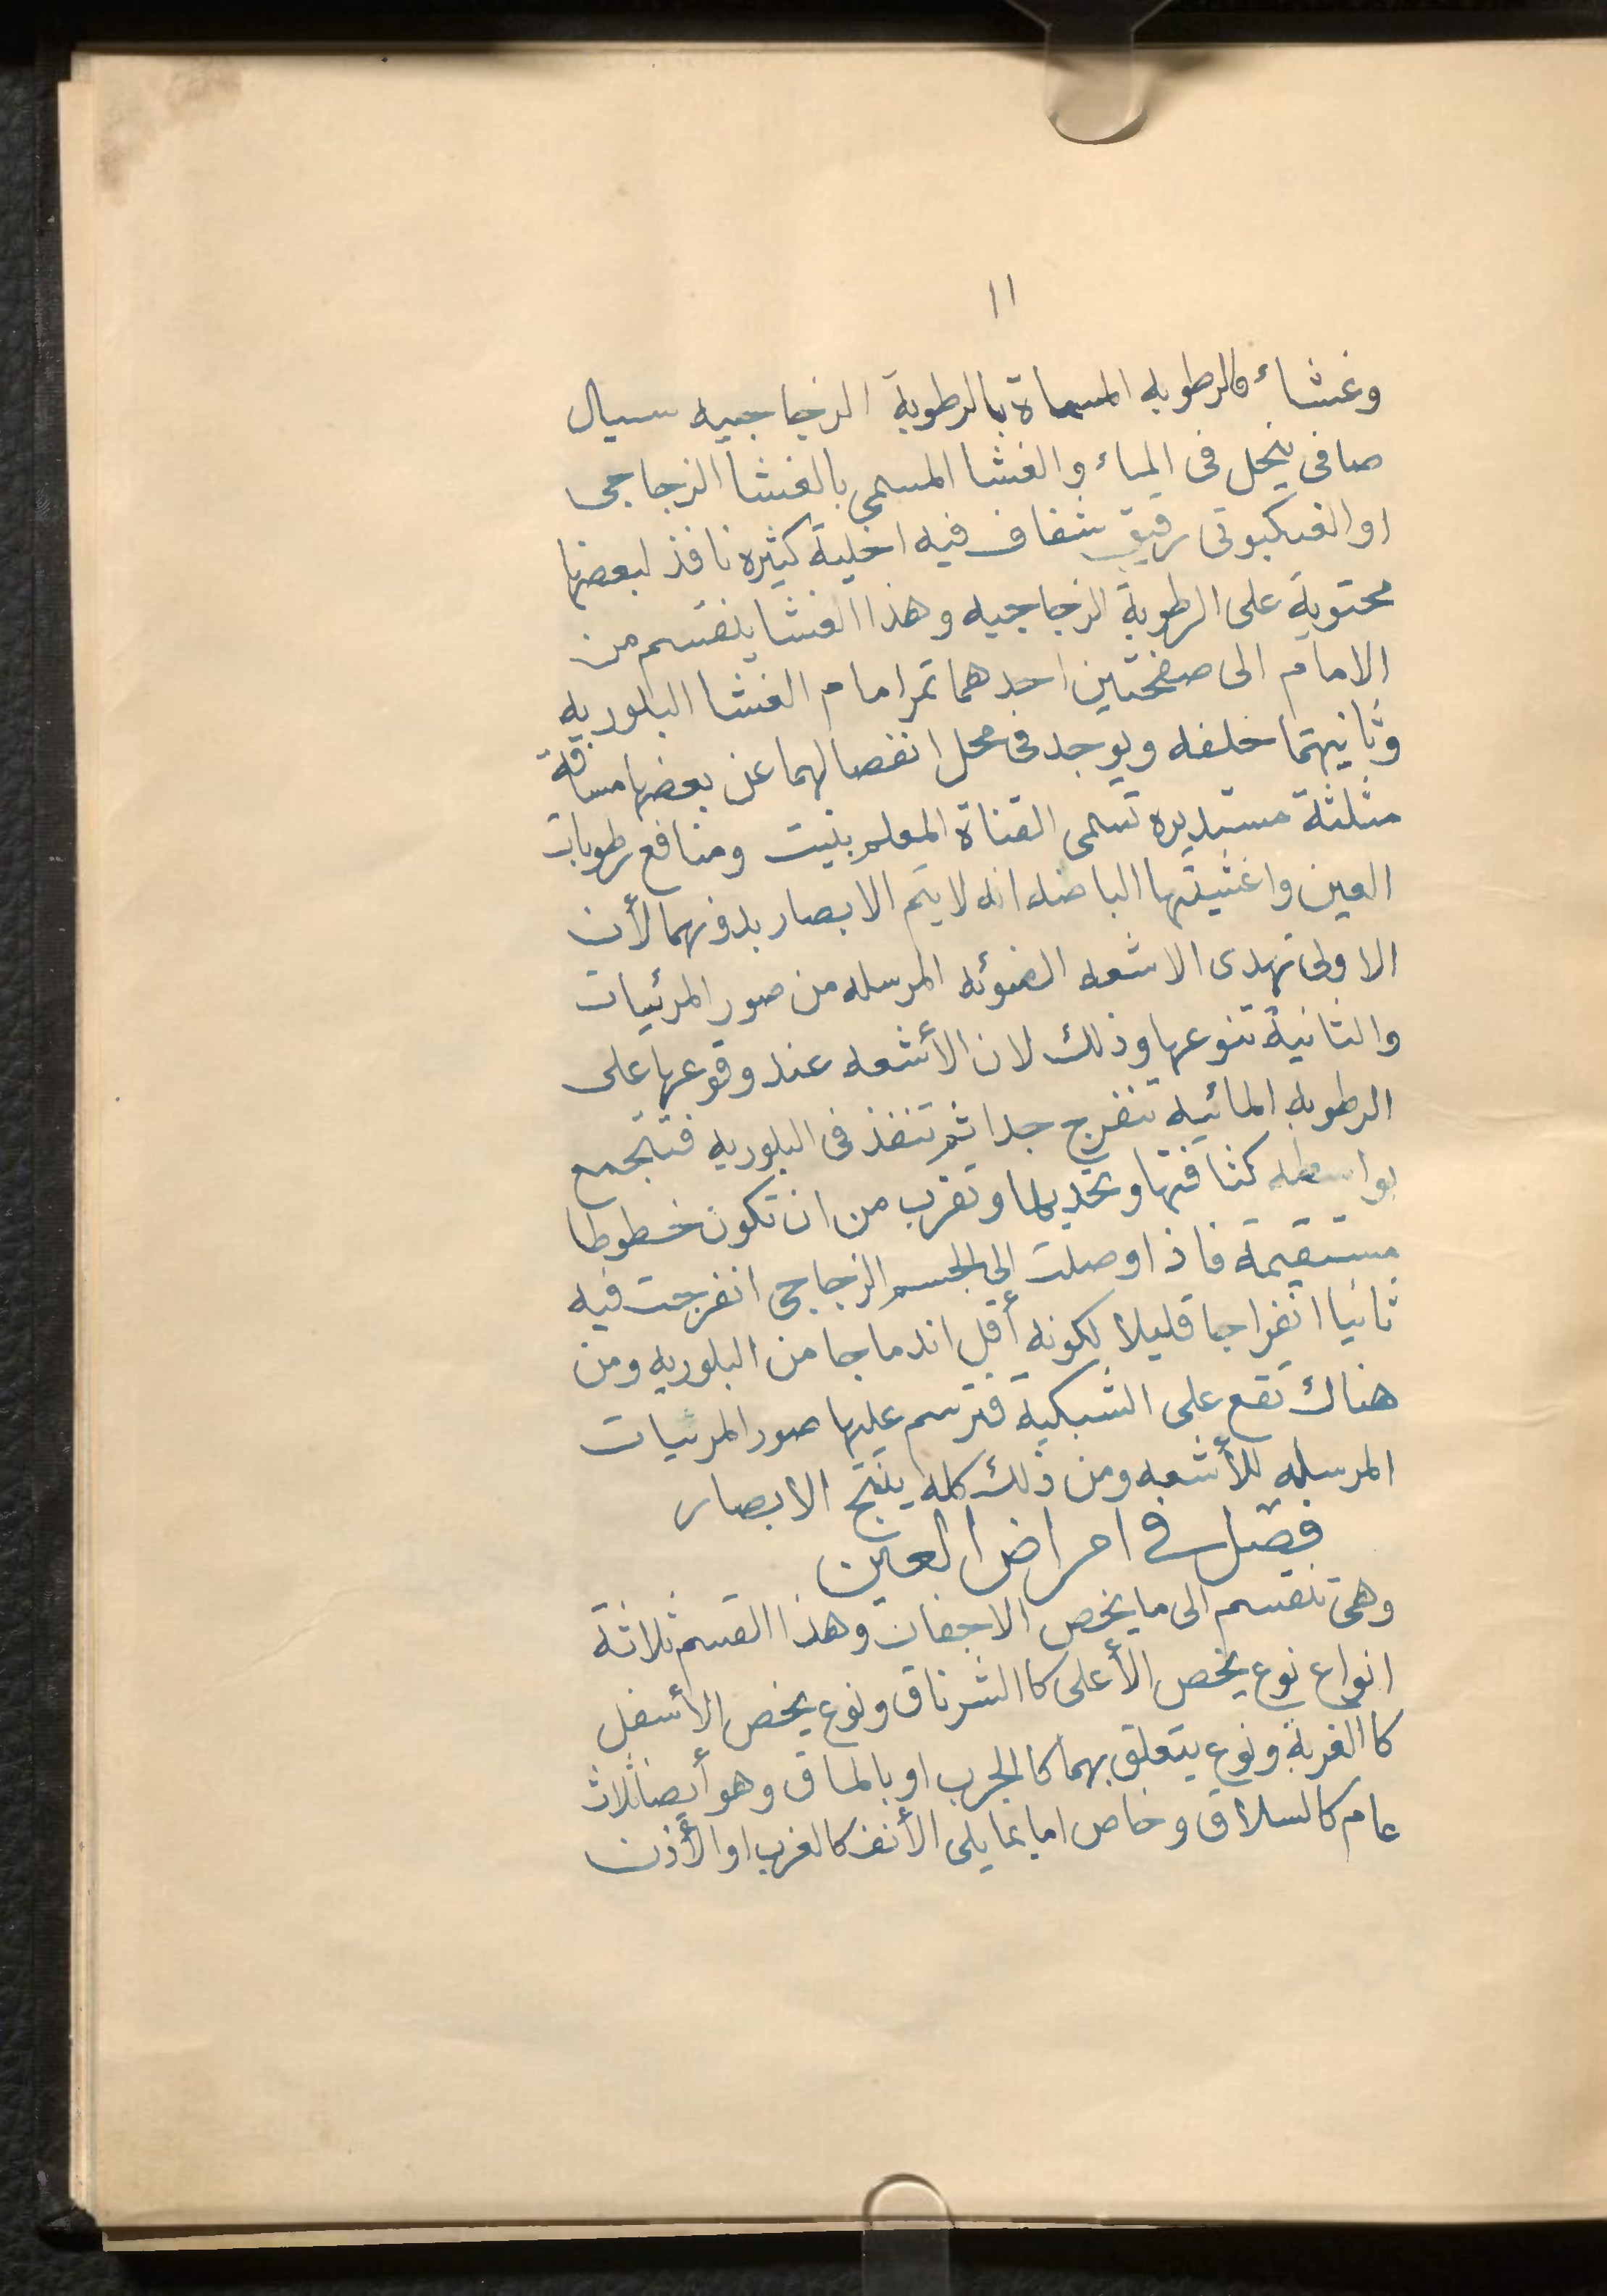 ١١
وغشاء فالرطوبه المسماة بالرطوبة الزجاجيه سيال
صافى ينحل فى الماء والغشا المسمى بالغشا الزجاجى
او العنكبوتى رقيق شفاف فيه اخلية كثيره نافذ لبعضها
محتوية على الرطوبة الزجاجيه وهذا الغشا ينقسم من
الامام الى صفحتين احدهما تمر امام الغشا البلوريه
وثانيهتما خلفه ويوجد فى محل انفصالهما عن بعضها مسافة
مثلثة مستديره تسمى القناة المعلم بتيت ومنافع رطوبات
العين واغشيتها الباضه انه لا يتم الابصار بدونهما لأن
الاولى تهدى الاشعه الضوئه المرسله من صور المرئيات
والثانية تنوعها وذلك لان الأشعه عند وقوعها على
الرطوبه المائيه تنفرج جدا ثم تنفذ فى البلوريه فتتجمع
بواسطه كثافتها وتحديها وتقرب من ان تكون خطوطا
مستقيمة فاذا وصلت الى الجسم الزجاجى انفرجت فيه
ثانيا انفراجا قليلا لكونه أقل اندماجا من البلوريه ومن
هناك تقع على الشبكية فترسم عليها صور المرئيات
المرسله للأشعه ومن ذلك كله ينتج الابصار
فصل فى امراض العين
وهى تنقسم الى ما يخص الاجفان وهذا القسم ثلاثة
انواع نوع يخص الأعلى كا الشرناق ونوع يخص الأسفل
كا الغربة ونوع يتعلق بهما كا الجرب او بالماق وهو أيضا ثلاث
عام كالسلاق وخاص اما بما يلى الأنف كالغرب او الأذن